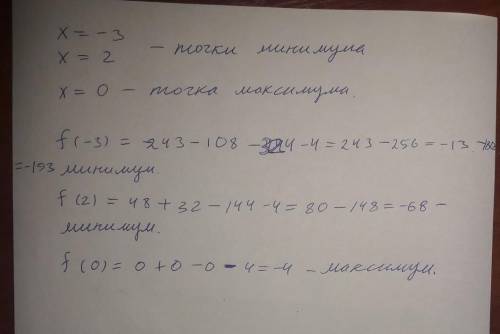 x = -3
x = 2 – точки минимума
x = 0 – точка максимума.
f(-3) = 243 - 108 - 324 - 4 = 243 - 256 = -13.
= -193 минимум.
f(2) = 48 + 32 - 144 - 4 = 80 - 148 = -68 -
минимум.
f(0) = 0 + 0 - 0 - 4 = -4 - максимум.